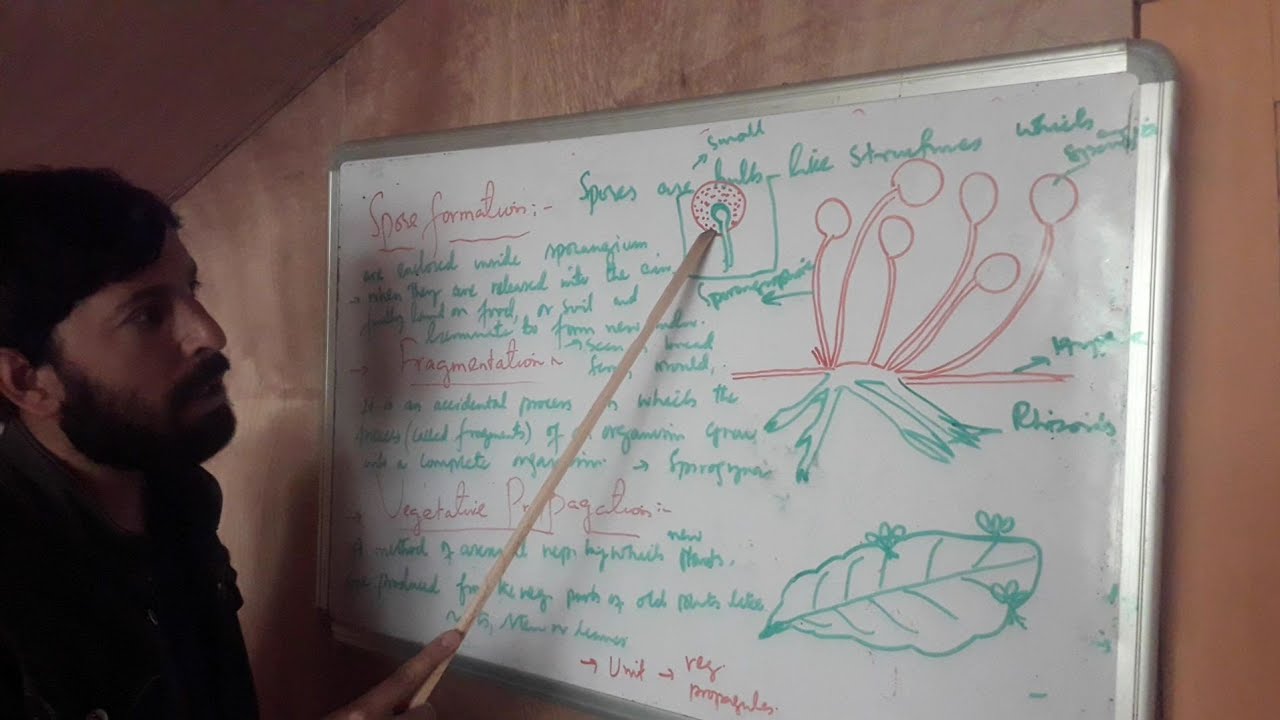 small
Spores are bulb-like structures which
Spore formation:-
are enclosed inside sporangium
→ when they are released into the air
land on food, or soil and
to form new
→ Fragmentation
mould,
It is an accidental process in which the
pieces (called fragments) of an organism grow
into a complete organism. → Spirogyra
→ Vegetative Propagation:-
new
A method of asexual rep: by which plants
are produced from the veg parts of old plants like
roots, stem or leaves
→ Unit → veg.
propagules.
Sporangiophore
Rhizoids